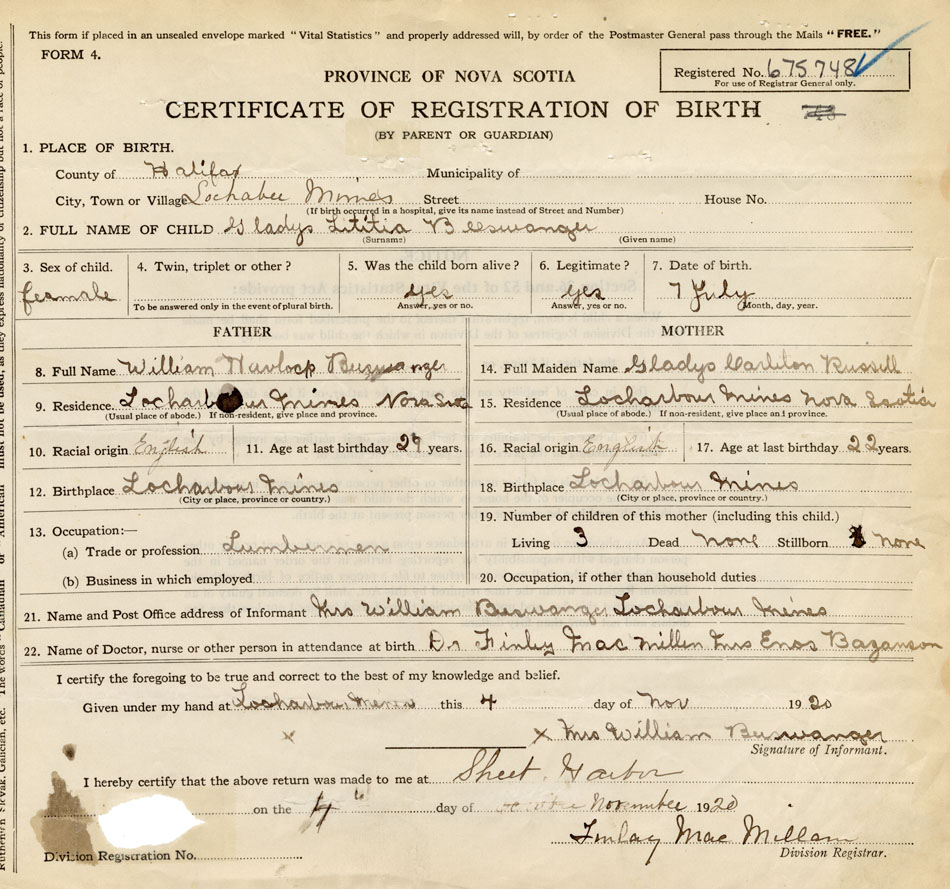 This form if placed in an unsealed envelope marked "Vital Statistics" and properly addressed will, by order of the Postmaster General pass through the Mails "FREE."
FORM 4.
Registered No. 675748
For use of Registrar General only.
PROVINCE OF NOVA SCOTIA
CERTIFICATE OF REGISTRATION OF BIRTH
(BY PARENT OR GUARDIAN)
1. PLACE OF BIRTH.
County of Halifax Municipality of
City, Town or Village Lochaber Mines Street House No.
(If birth occurred in a hospital, give its name instead of Street and Number)
2. FULL NAME OF CHILD Gladys Letitia Beeswanger
(Surname) (Given name)
3. Sex of child. 4. Twin, triplet or other? 5. Was the child born alive? 6. Legitimate? 7. Date of birth.
female yes yes 7 July
To be answered only in the event of plural birth. Answer, yes or no. Answer, yes or no. Month, day, year.
FATHER MOTHER
8. Full Name William Havlock 14. Full Maiden Name Gladys Carleton Russell
9. Residence Locharbour Mines Nova Scotia 15. Residence Locharbour Mines Nova Scotia
(Usual place of abode.) If non-resident, give place and province. (Usual place of abode.) If non-resident, give place and province.
10. Racial origin English 11. Age at last birthday 29 years. 16. Racial origin English 17. Age at last birthday 22 years.
12. Birthplace Locharbour Mines 18. Birthplace Locharbour Mines
(City or place, province or country.) (City or place, province or country.)
13. Occupation:— 19. Number of children of this mother (including this child.)
(a) Trade or profession Lumbermen Living 3 Dead None Stillborn None
(b) Business in which employed 20. Occupation, if other than household duties
21. Name and Post Office address of Informant Mrs William Beeswanger Locharbour Mines
22. Name of Doctor, nurse or other person in attendance at birth Dr Finley Mac Millen Mrs Enos Baganson
I certify the foregoing to be true and correct to the best of my knowledge and belief.
Given under my hand at Locharbour Mines this 4 day of Nov 1920
x Mrs William Beeswanger
Signature of Informant.
I hereby certify that the above return was made to me at Sheet Harbor
on the 4" day of November 1920
Finlay Mac Millan
Division Registration No. Division Registrar.